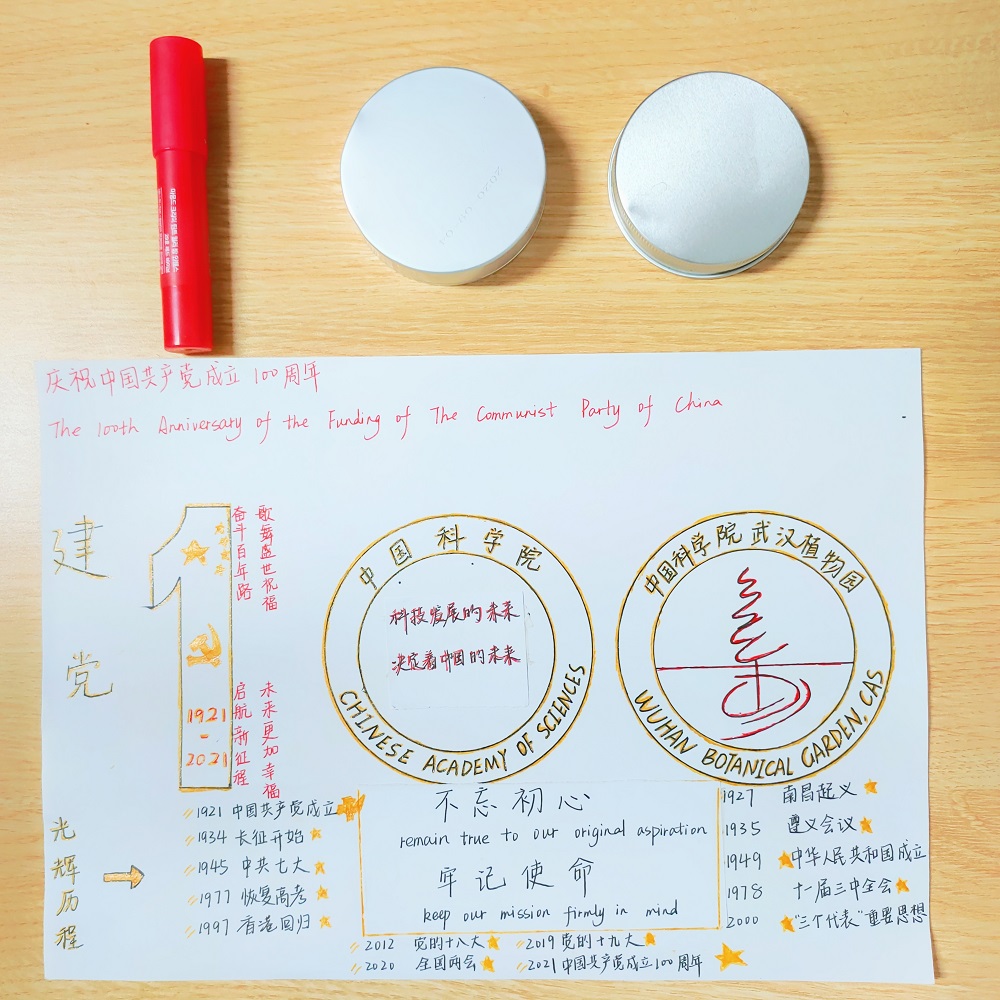 庆祝中国共产党成立100周年
The 100th Anniversary of the Funding of The Communist Party of China
建党
1921
-
2021
歌舞盛世祝福
奋斗百年路
未来更加幸福
启航新征程
中国科学院
科技发展的未来
决定着中国的未来
CHINESE ACADEMY OF SCIENCES
中国科学院武汉植物园
WUHAN BOTANICAL GARDEN, CAS
光辉历程
1921 中国共产党成立
1934 长征开始
1945 中共七大
1977 恢复高考
1997 香港回归
不忘初心
remain true to our original aspiration
牢记使命
keep our mission firmly in mind
1927 南昌起义
1935 遵义会议
1949 中华人民共和国成立
1978 十一届三中全会
2000 "三个代表"重要思想
2012 党的十八大
2019 党的十九大
2020 全国两会
2021 中国共产党成立100周年